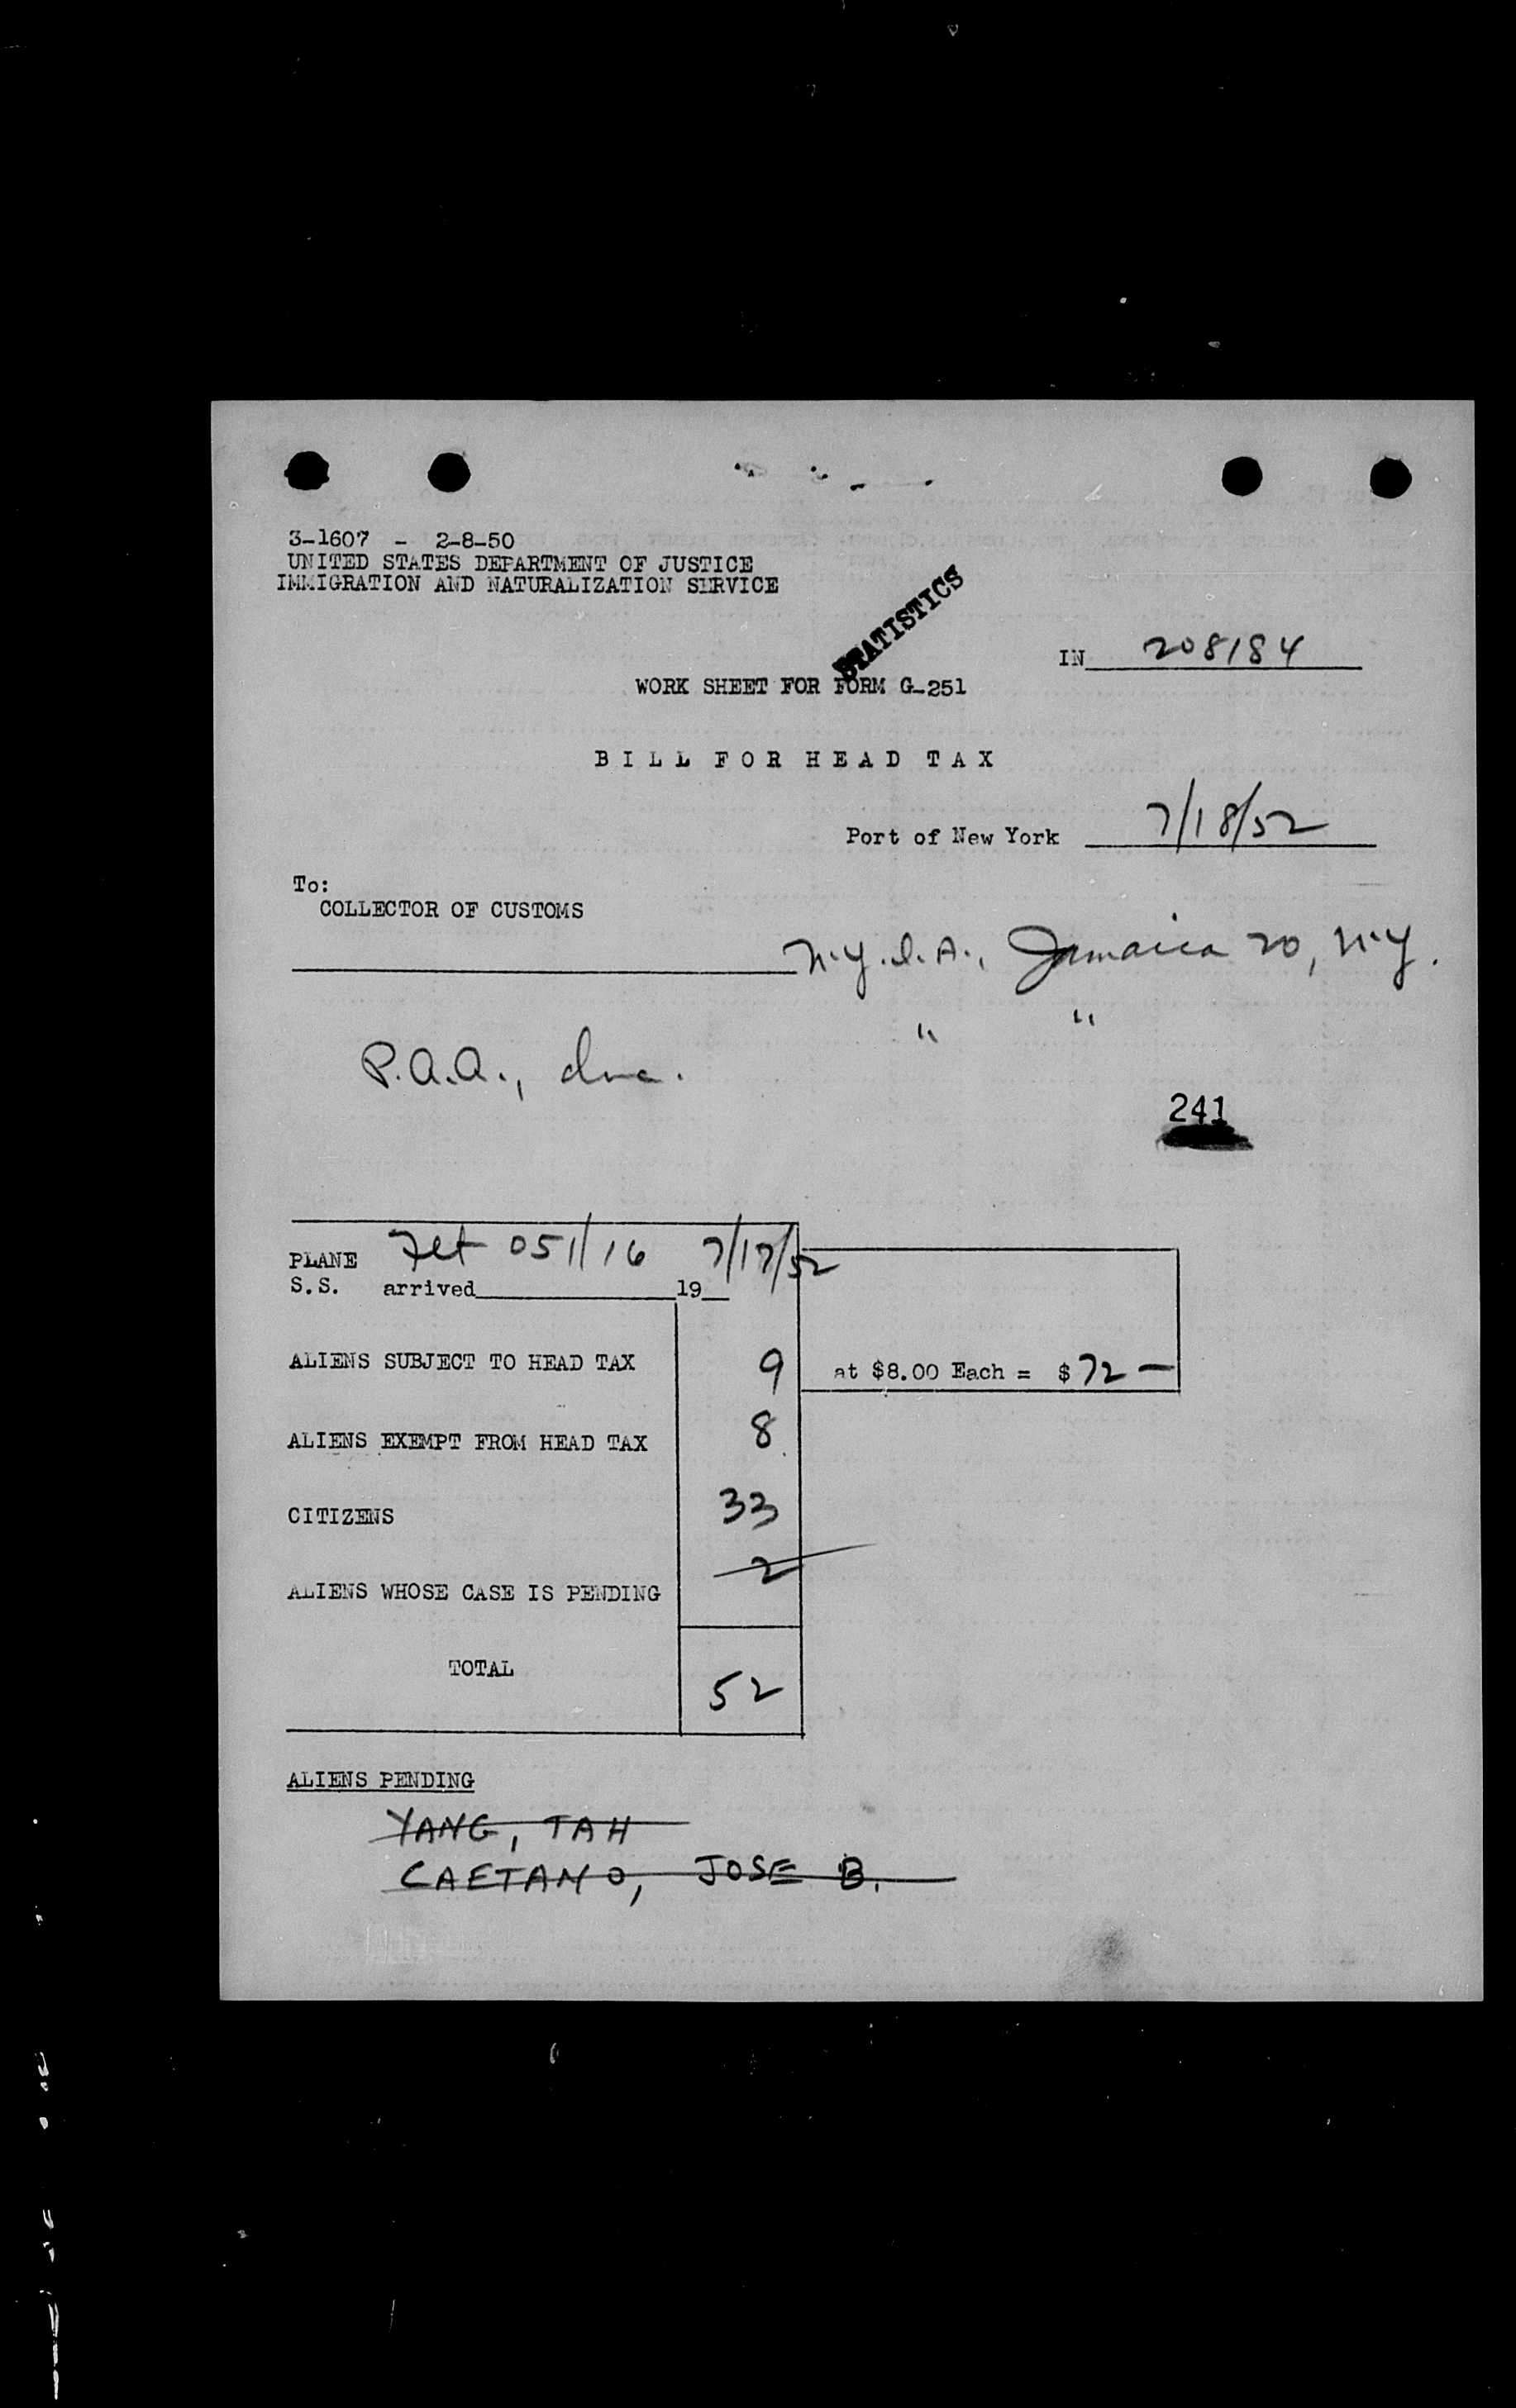 3-1607 - 2-8-50
UNITED STATES DEPARTMENT OF JUSTICE
IMMIGRATION AND NATURALIZATION SERVICE
STATISTICS
IN 208184
WORK SHEET FOR FORM G-251
BILL FOR HEAD TAX
Port of New York 7/18/52
To:
COLLECTOR OF CUSTOMS
N.Y.I.A., Jamaica 20, N.Y.
P.A.A., Inc. " "
241
PLANE Flt 051/16 7/17/52
S.S. arrived 19
ALIENS SUBJECT TO HEAD TAX 9 at $8.00 Each = $72 —
ALIENS EXEMPT FROM HEAD TAX 8
CITIZENS 33
ALIENS WHOSE CASE IS PENDING 2
TOTAL 52
ALIENS PENDING
YANG, TAH
CAETANO, JOSE B.